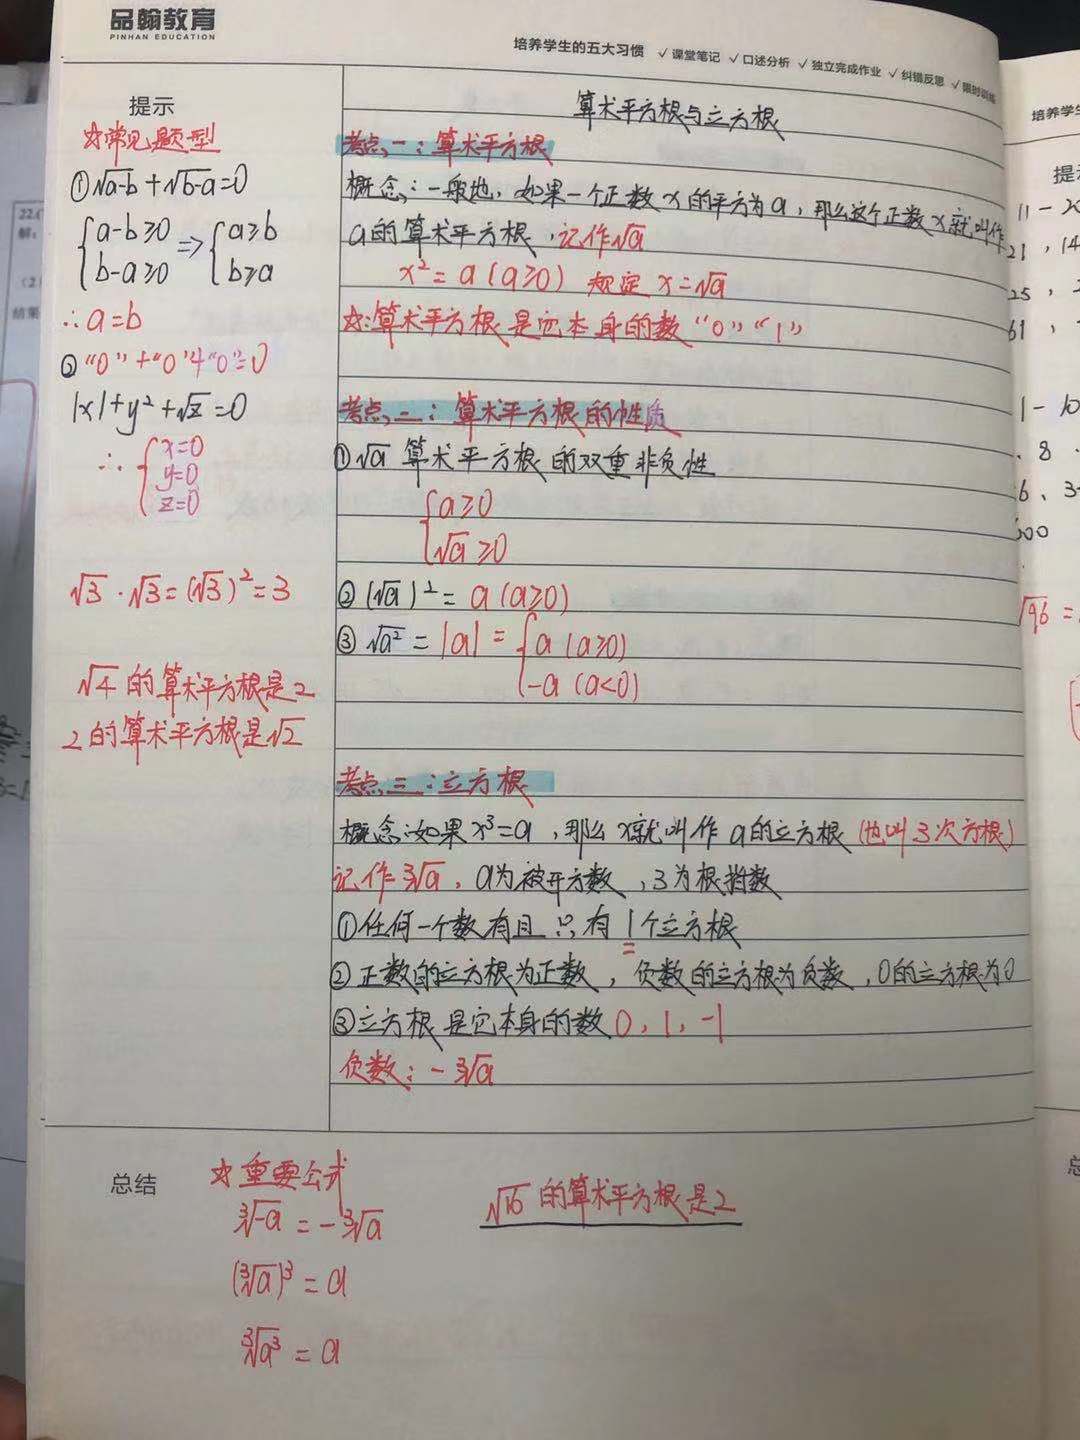 品翰教育
PINHAN EDUCATION
培养学生的五大习惯 ✓课堂笔记 ✓口述分析 ✓独立完成作业 ✓纠错反思 ✓限时训练
提示
☆常见题型
①√(a-b)+√(b-a)=0
{a-b≥0 b-a≥0 ⇒ {a≥b b≥a
∴a=b
②“0”+“0”+“0”=0
|x|+y²+√z=0
∴{x=0
y=0
z=0
√3·√3=(√3)²=3
√4的算术平方根是2
2的算术平方根是√2
算术平方根与立方根
考点一：算术平方根
概念：一般地，如果一个正数x的平方为a，那么这个正数x就叫作
a的算术平方根，记作√a
x²=a(a≥0) 规定x=√a
☆：算术平方根是它本身的数“0”“1”
考点二：算术平方根的性质
①√a算术平方根的双重非负性
{a≥0
√a≥0
②(√a)²=a(a≥0)
③√a²=|a|={a(a≥0)
-a(a<0)
考点三：立方根
概念：如果x³=a，那么x就叫作a的立方根(也叫3次方根)
记作³√a，a为被开方数，3为根指数
①任何一个数有且只有1个立方根
②正数的立方根为正数，负数的立方根为负数，0的立方根为0
③立方根是它本身的数0，1，-1
负数：-³√a
总结
☆重要公式
³√-a=-³√a
(³√a)³=a
³√a³=a
√16的算术平方根是2
培养学生
提
11-
21，14
25，
61，
1-10
8
6、3
600
√96=
22.
解：
结果
总